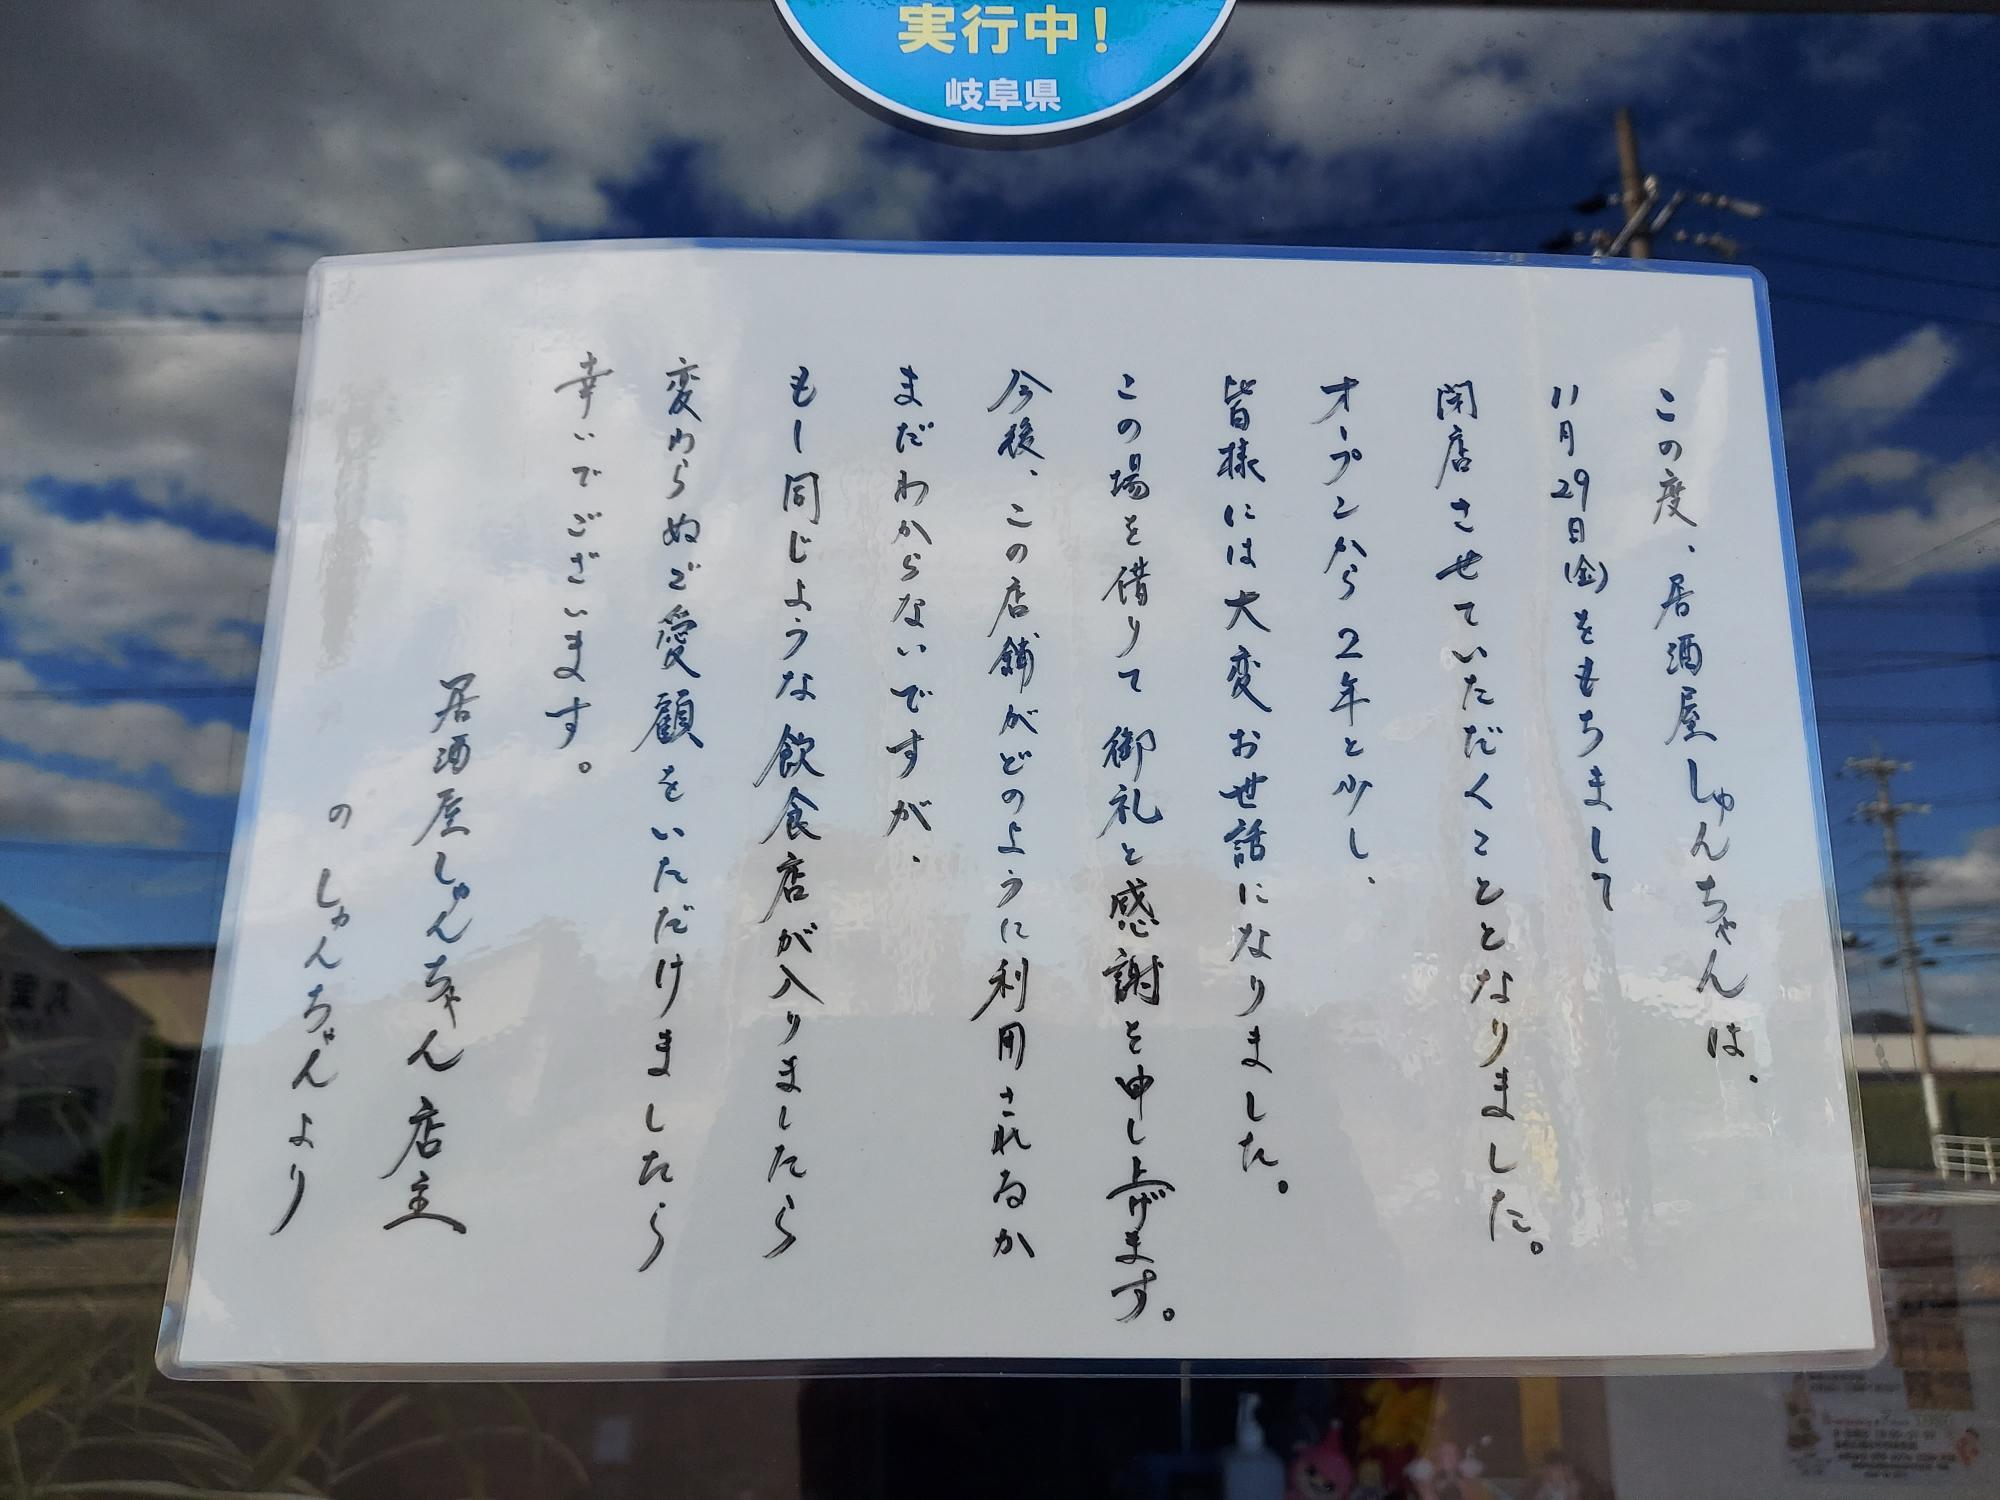 実行中!
岐阜県
この度、居酒屋しゅんちゃんは、
11月29日(金)をもちまして
閉店させていただくこととなりました。
オープンから2年と少し、
皆様には大変お世話になりました。
この場を借りて御礼と感謝を申し上げます。
今後、この店舗がどのように利用されるか
まだわからないですが、
もし同じような飲食店が入りましたら
変わらぬご愛顧をいただけましたら
幸いでございます。
居酒屋しゅんちゃん 店主
のしゅんちゃんより